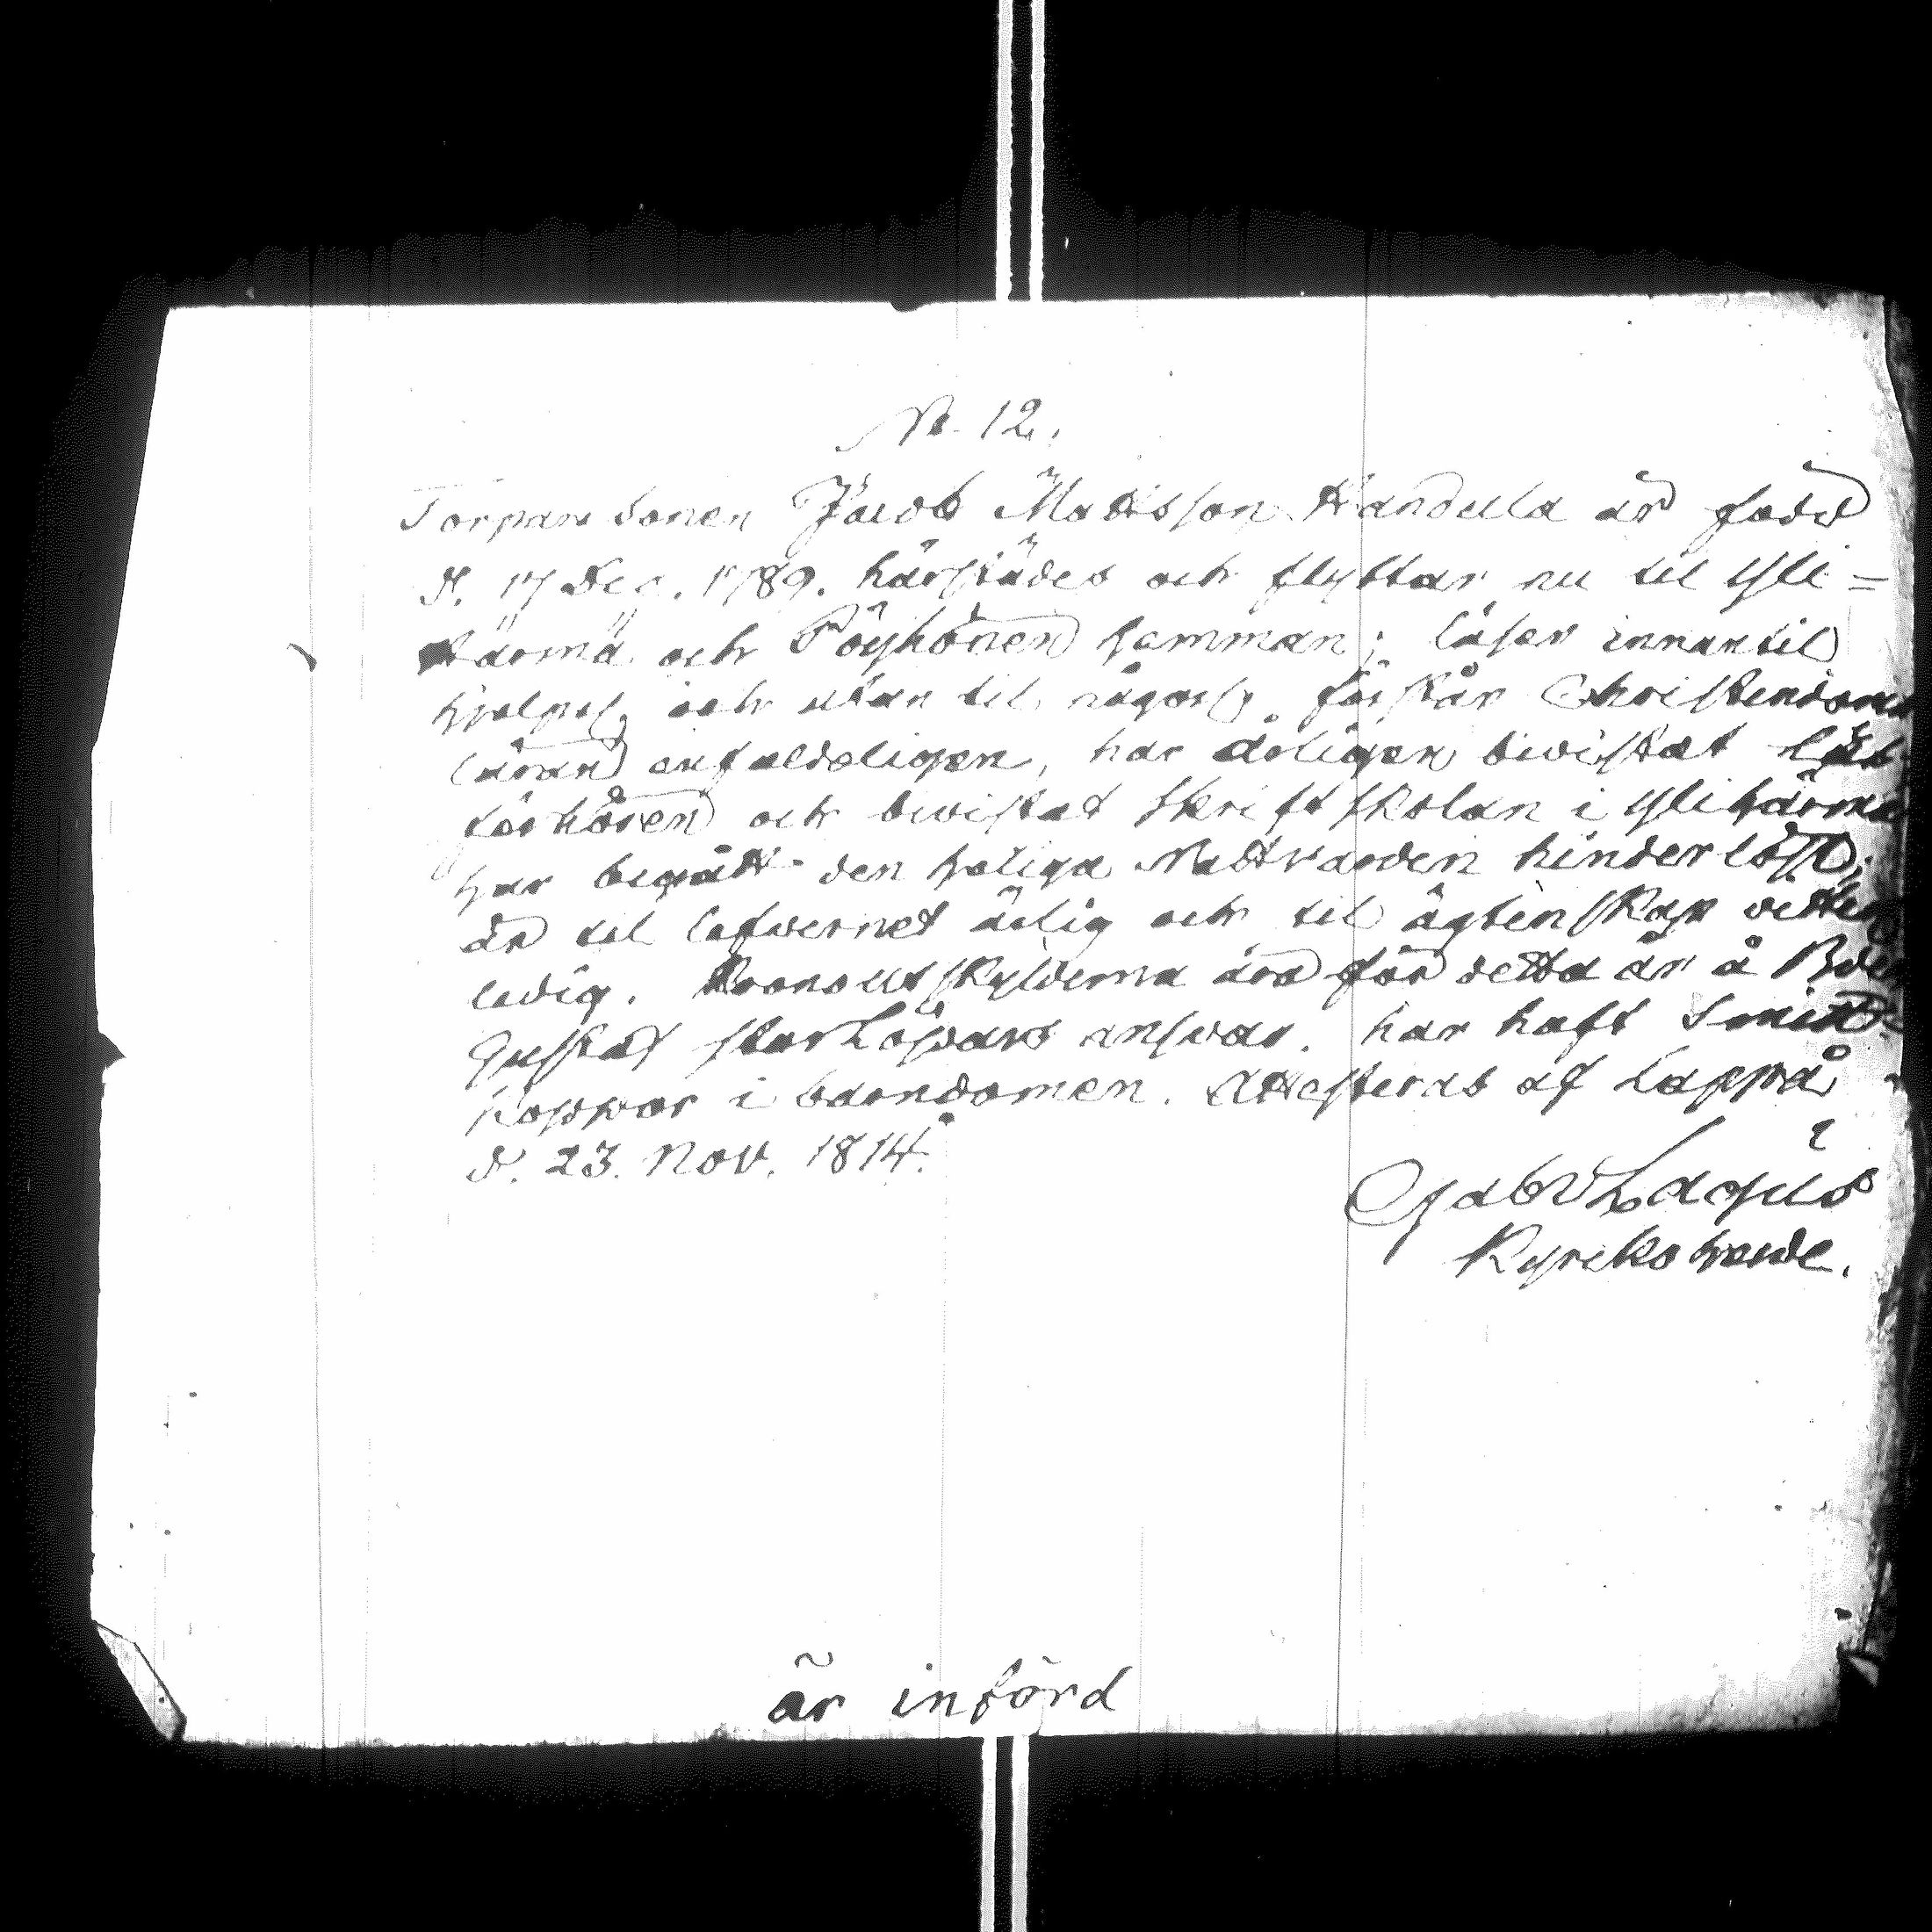 No. 12.
Torpare Sonen Jacob Mattsson Handula är född
d. 17 Dec. 1789. härstädes och flyttar nu til Yli=
Härmä och Pöyhönen hemman; läser innantil
hjelpel. och utan til någorl. förstår Christendoms
läran enfaldeligen, har årligen bivistat Läs
förhören och bivistat Skriftskolan i Ylihärmä
har begått den heliga Nattvarden hinderlöst;
är til lefvernet ärlig och til ägtenskap
ledig. Kronoutskylderna äro för detta år å
Gustaf ansvar. har haft Smitt
koppor i barndomen. Attesteras af Lappå
d. 23. Nov. 1814.
Gabr Lagus
Kyrkoherde.
är införd